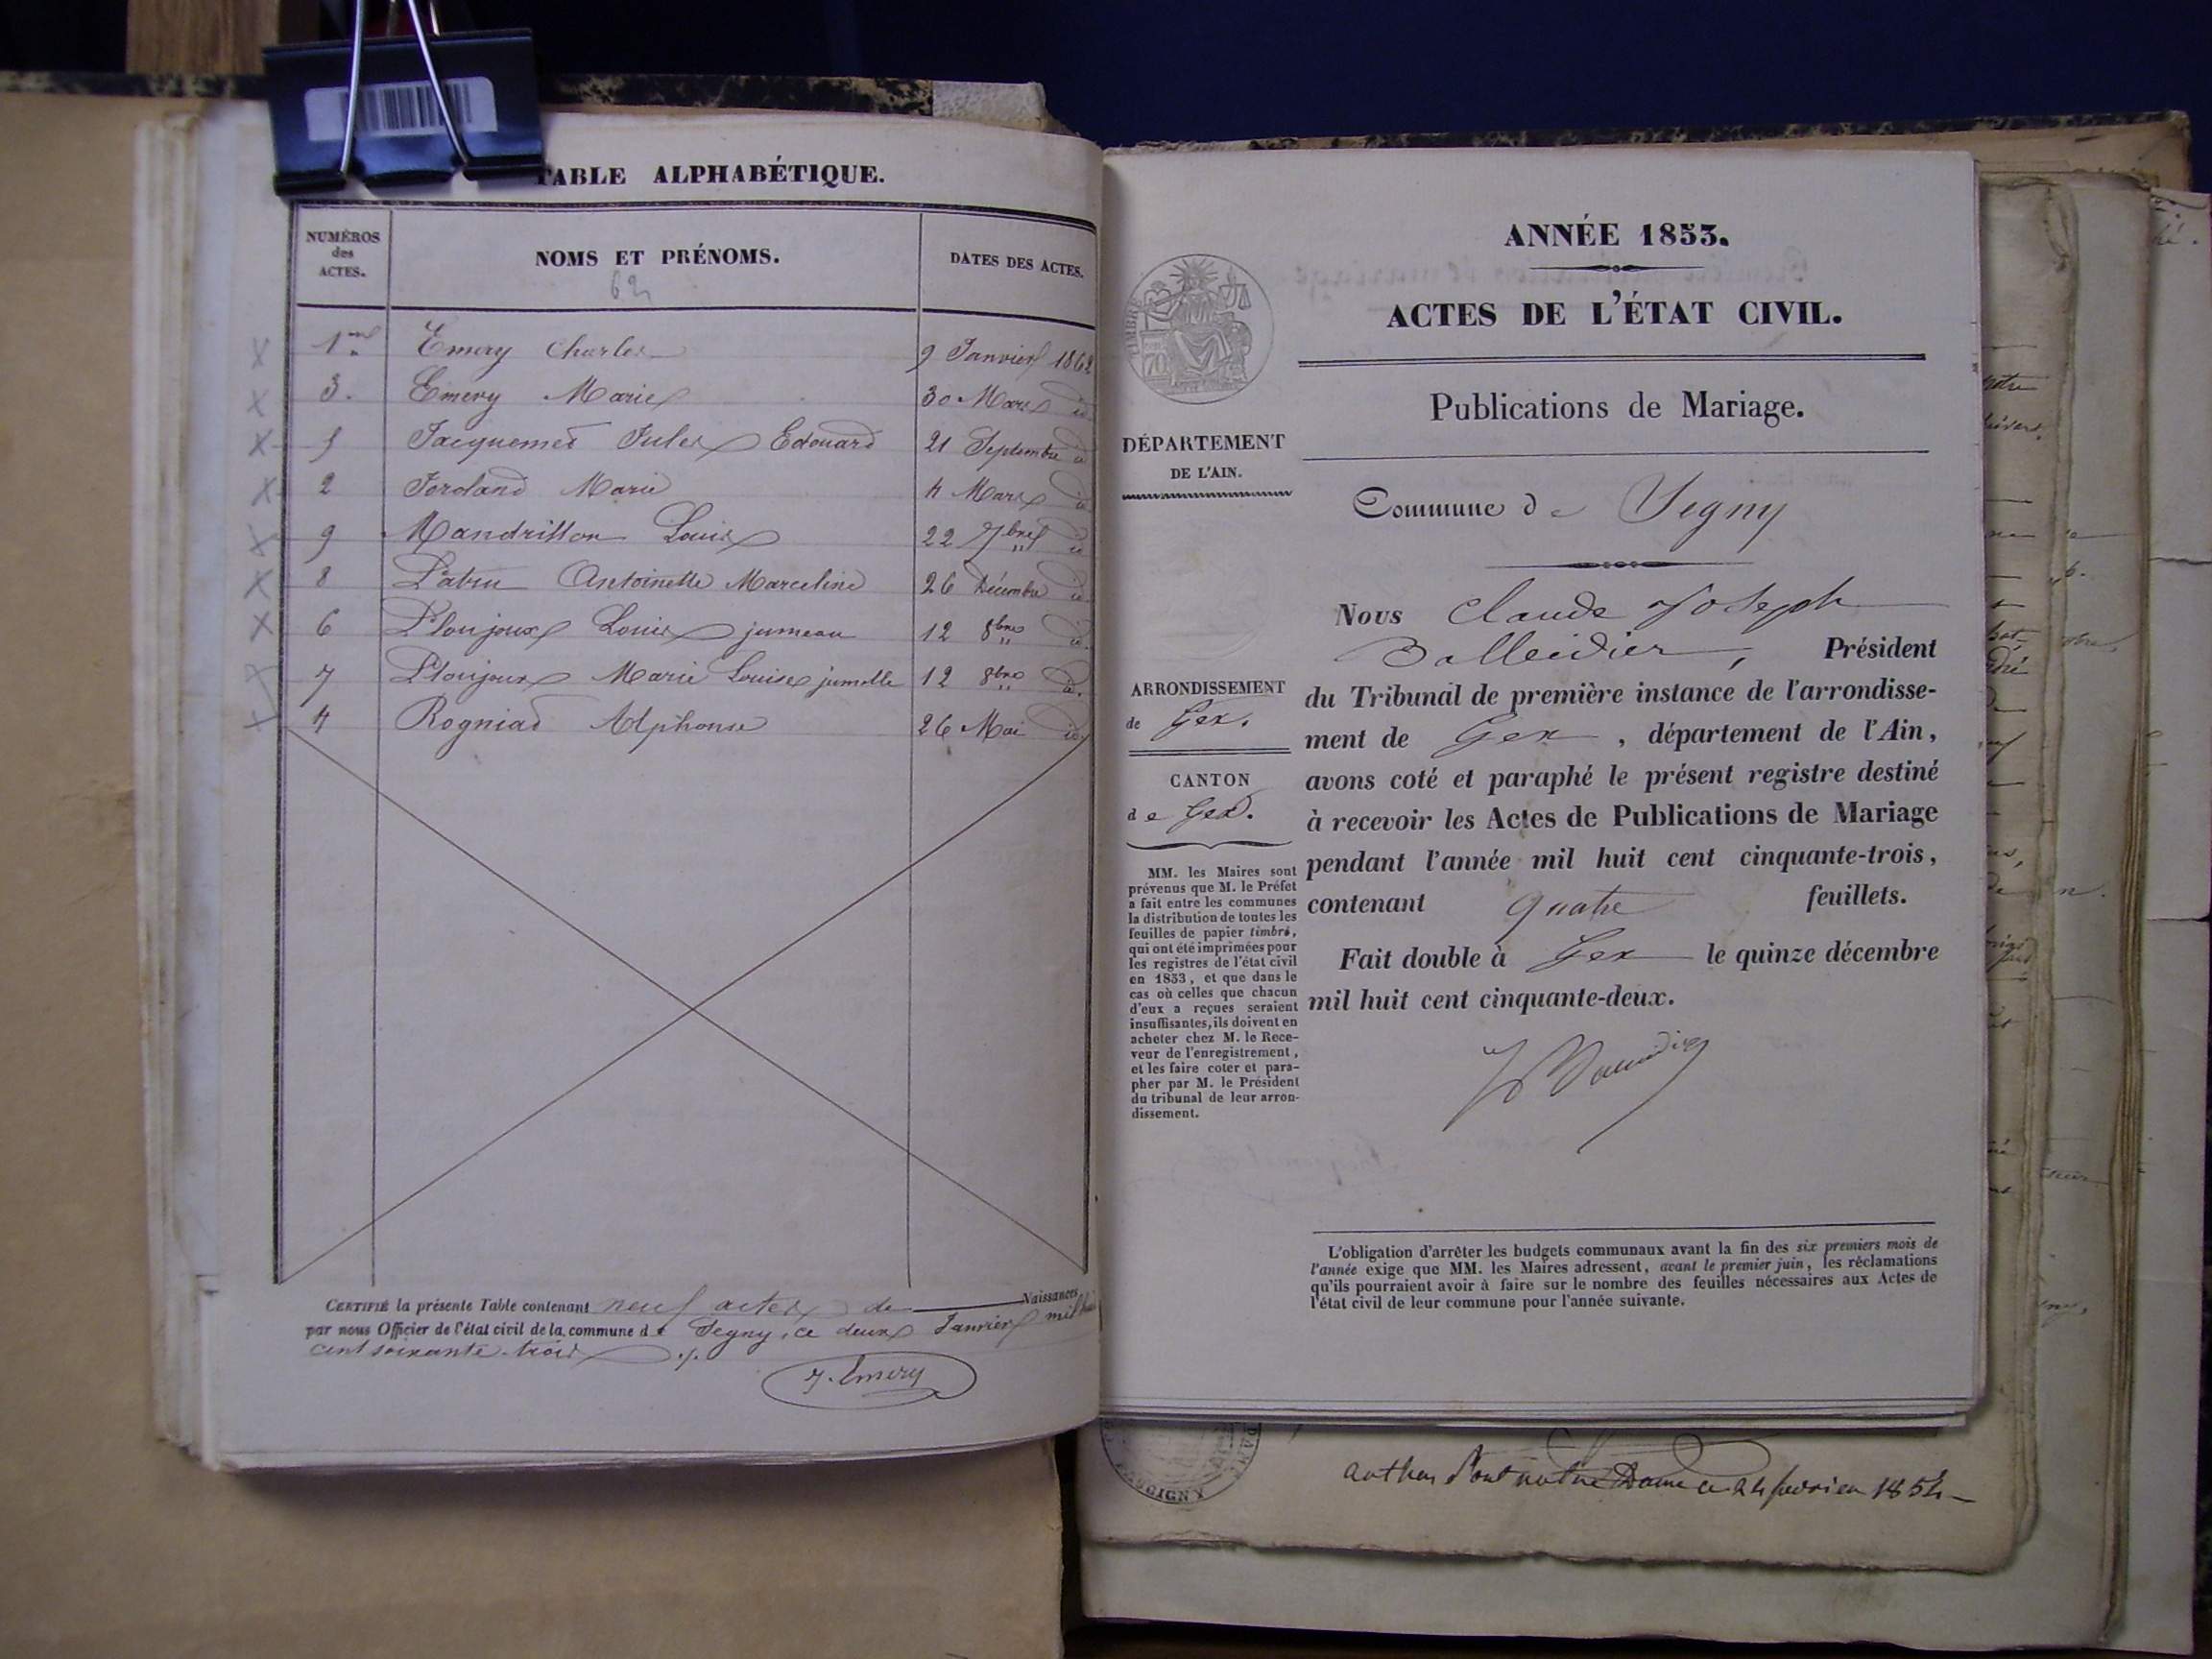 TABLE ALPHABÉTIQUE.
NUMÉROS des ACTES.
NOMS ET PRÉNOMS.
DATES DES ACTES.
62
1er Emery Charles 9 Janvier 1862
3. Emery Marie 30 Mars id
5 Jacquemet Jules Edouard 21 Septembre id
2 Joroland Marie 4 Mars id
9 Mandrillon Louis 22 7bre id
8 Patru Antoinette Marceline 26 Décembre id
6 Ploujoux Louis jumeau 12 8bre id
7 Ploujoux Marie Louise jumelle 12 8bre id.
4 Rogniad Alphonse 26 Mai id
CERTIFIÉ la présente Table contenant neuf actes de Naissances
par nous Officier de l'état civil de la commune de Segny, ce deux Janvier mil huit
cent soixante-trois
J. Emery
ANNÉE 1853.
ACTES DE L'ÉTAT CIVIL.
Publications de Mariage.
TIMBRE
70
DÉPARTEMENT
DE L'AIN.
Commune de Segny
ARRONDISSEMENT
de Gex.
CANTON
de Gex.
MM. les Maires sont
prévenus que M. le Préfet
a fait entre les communes
la distribution de toutes les
feuilles de papier timbré,
qui ont été imprimées pour
les registres de l'état civil
en 1853, et que dans le
cas où celles que chacun
d'eux a reçues seraient
insuffisantes, ils doivent en
acheter chez M. le Rece-
veur de l'enregistrement,
et les faire coter et para-
pher par M. le Président
du tribunal de leur arron-
dissement.
Nous Claude Joseph
Balleidier, Président
du Tribunal de première instance de l'arrondisse-
ment de Gex, département de l'Ain,
avons coté et paraphé le présent registre destiné
à recevoir les Actes de Publications de Mariage
pendant l'année mil huit cent cinquante-trois,
contenant quatre feuillets.
Fait double à Gex le quinze décembre
mil huit cent cinquante-deux.
L'obligation d'arrêter les budgets communaux avant la fin des six premiers mois de
l'année exige que MM. les Maires adressent, avant le premier juin, les réclamations
qu'ils pourraient avoir à faire sur le nombre des feuilles nécessaires aux Actes de
l'état civil de leur commune pour l'année suivante.
notre Dame ce 24 février 1854